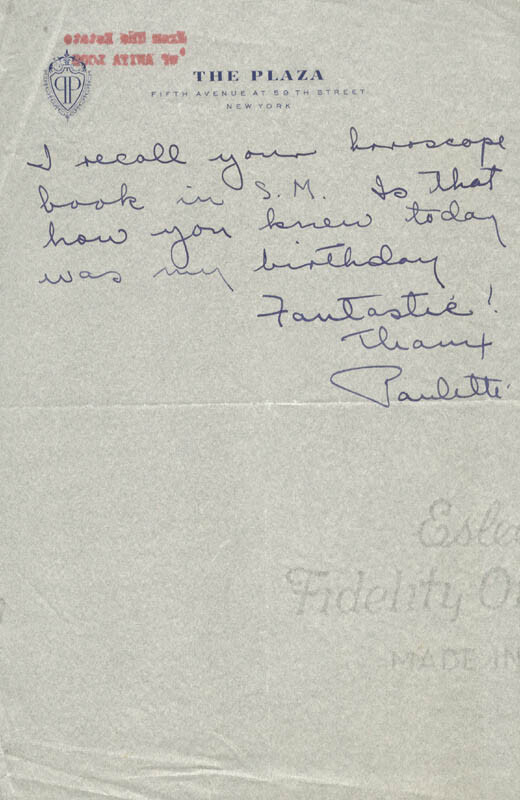 From The Estate
of ANITA LOOS
PP
THE PLAZA
FIFTH AVENUE AT 59TH STREET
NEW YORK
I recall your horoscope
book in S.M. Is that
how you knew today
was my birthday
Fantastic!
Thanx
Paulette
Eslee
Fidelity On
MADE IN